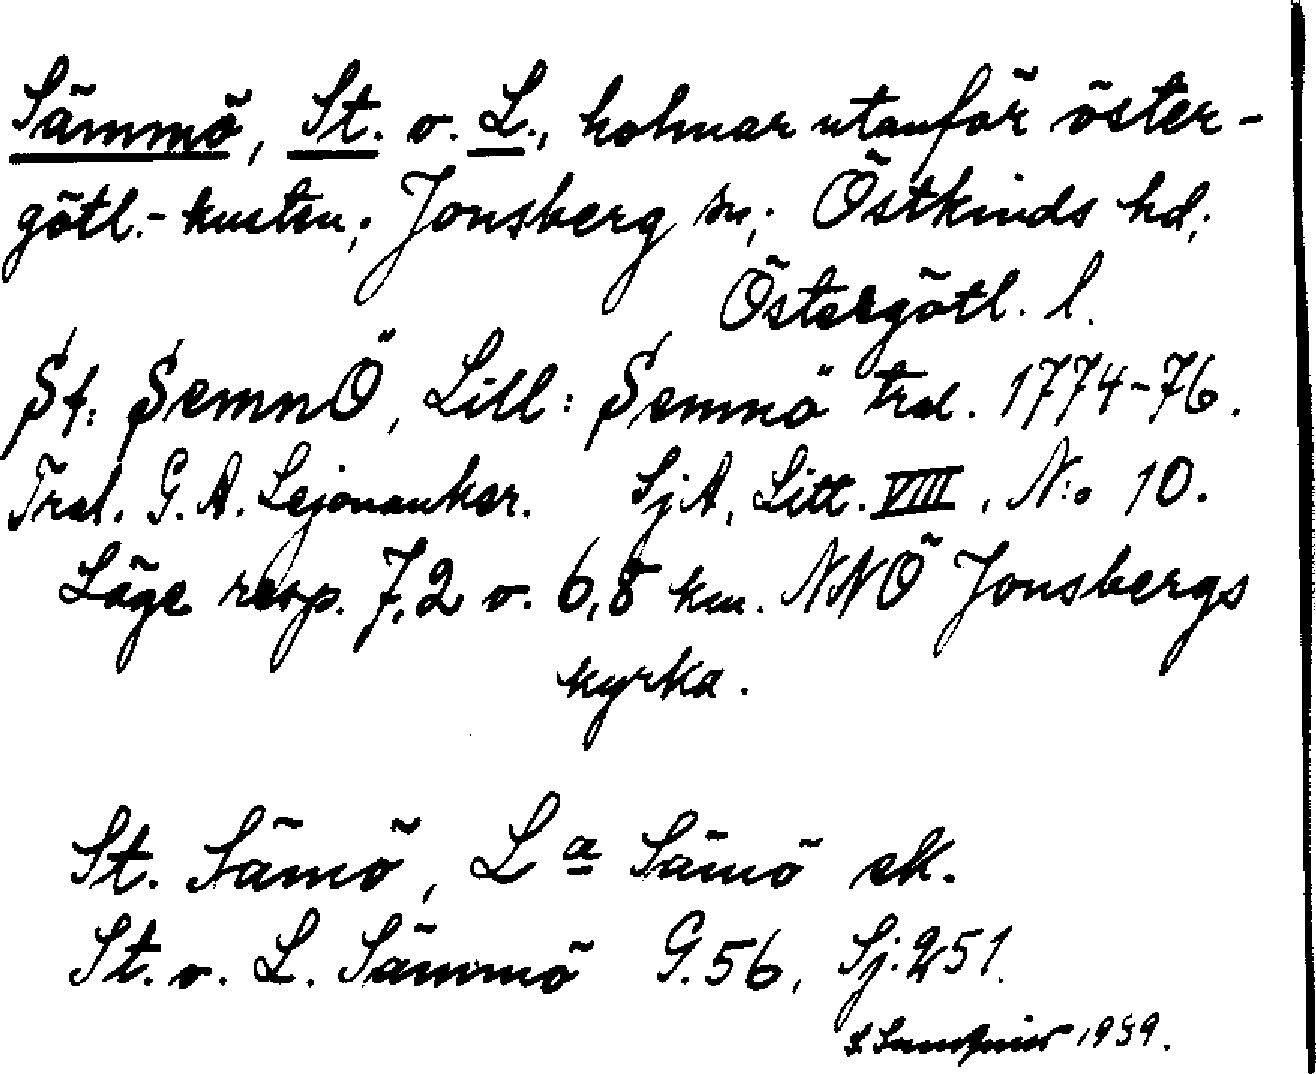 Sämmö, St. o. L., holmar utanför öster-
götl.-kusten; Jonsberg sn; Östkinds hd;
Östergötl. l.
St: SemnÖ, Lill: Semnö Tral. 1774-76.
Tral. G. A. Lejonanker. SjA, Litt. VIII, N:o 10.
Läge resp. 7,2 o. 6,8 km. NNÖ Jonsbergs
kyrka.
St. Sämö, La Sämö ek.
St. o. L. Sämmö G. 56, Sj. 251.
1939.